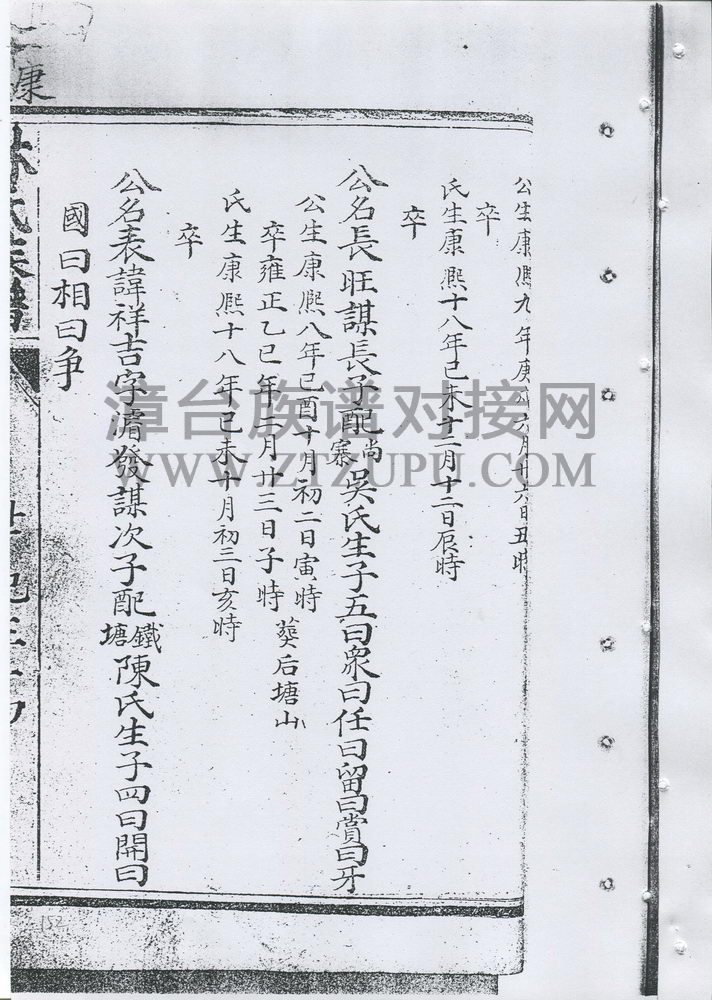 公生康熙九年庚戌六月廿六日丑時
卒
氏生康熙十八年己未十二月十二日辰時
卒
公名長旺謀長子配尚寨吳氏生子五曰衆曰任曰留曰賞曰牙
公生康熙八年己酉十月初二日寅時
卒雍正乙巳年二月廿三日子時 葬后塘山
氏生康熙十八年己未十月初三日亥時
卒
公名表諱祥吉字濬發謀次子配鐵塘陳氏生子四曰開曰
國曰相曰争
林氏族譜
康
漳台族谱对接网
WWW.ZTZUPU.COM
152